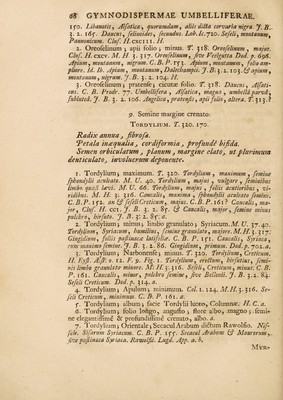 68 GYMNODISPERMAE UMBELLIFERAE.
150. Libanotis, Alsatica, quorundam, aliis dicta carvaria nigra. J. B.
3. 2. 165. Daucus, selinoides, secundus. Lob. Ic. 720. Seseli, montanum,
Pannonicum. Clus. H. cxciii. H.
2. Oreoselinum; apii folio; minus. T. 318. Oreoselinum, majus.
Clus. H. cxcv. M. H. 3. 317. Oreoselinum, sive Veelgutta. Dod. p. 696.
Apium, montanum, nigrum. C. B. P. 153. Apium, montanum, folio ampliore.
H. D. Apium, montanum, Dalechampii. J. B. 3. 2. 103. & apium,
montanum, nigrum. J. B. 3. 2. 104. H.
3. Oreoselinum; pratense; cicutae folio. T. 318. Daucus, Alsaticus.
C. B. Prodr. 77. Umbellifera, Alsatica, magna, umbellâ parvâ,
sublutea. J. B. 3. 2. 106. Angelica, pratensis, apii folio, altera. T. 313.
9. Semine margine crenato.
TORDYLIUM. T. 320. 170.
Radix annua, fibrosa.
Petala inaequalia, cordiformia, profundè bifida.
Semen orbiculatum, planum, margine elato, ut plurimum
denticulato, involucrum deponente.
1. Tordylium; maximum. T. 320. Tordylium, maximum, semine
sphondylii aculeato. M. U. 40. Tordylium, majus, vulgare, seminibus
limbo quasi laevi. M. U. 66. Tordylium, majus, foliis acutioribus, viridibus.
M. H. 3. 316. Caucalis, maxima, sphondylii aculeato semine.
C. B. P. 152. an & seseli Creticum, majus. C. B. P. 161? Caucalis, major,
Clus. H. cci. J. B. 3. 2. 85. & Caucalis, major, semine minus
pulchro, hirsuto. J. B. 3. 2. 85. a.
2. Tordylium; minus; limbo granulato; Syriacum. M. U. 37. 40.
Tordylium, Syriacum, humilius, semine granulato, majore. M. H. 3. 317.
Gingidium, foliis pastinacae latifoliae. C. B. P. 151. Caucalis, Syriaca,
cum maximo semine. J. B. 3. 2. 86. Gingidium, primum. Dod. p. 702. a.
3. Tordylium; Narbonense; minus. T. 320. Tordylium, Creticum.
H. Eyst. Æst. o. 12. F. 9. Fig. 1. Tordylium, erectum, hirsutius, seminis
limbo granulato minore. M. H. 3. 316. Seseli, Creticum, minus. C. B.
P. 161. Caucalis, minor, pulchro semine, sive Bellonii. J. B. 3. 2. 84.
Seseli Creticum. Dod. p. 314. a.
4. Tordylium; Apulum; minimum. Col. 1. 124. M. H. 3. 316. Seseli
Creticum, minimum. C. B. P. 161. a.
5. Tordylium; album; facie Tordylii lutea, Columnae. H. C. a.
6. Tordylium; folio longo, angusto, flore albo, magno; semine
elegantissimè & profundissimè crenato, albo. a.
7. Tordylium; Orientale; Secacul Arabum dictum Rawolfio. Nissole.
Sisarum Syriacum. C. B. P. 155. Secacul Arabum & Maurorum,
sive pastinaca Syriaca. Rawolfii. Lugd. App. a. b.
MYR-